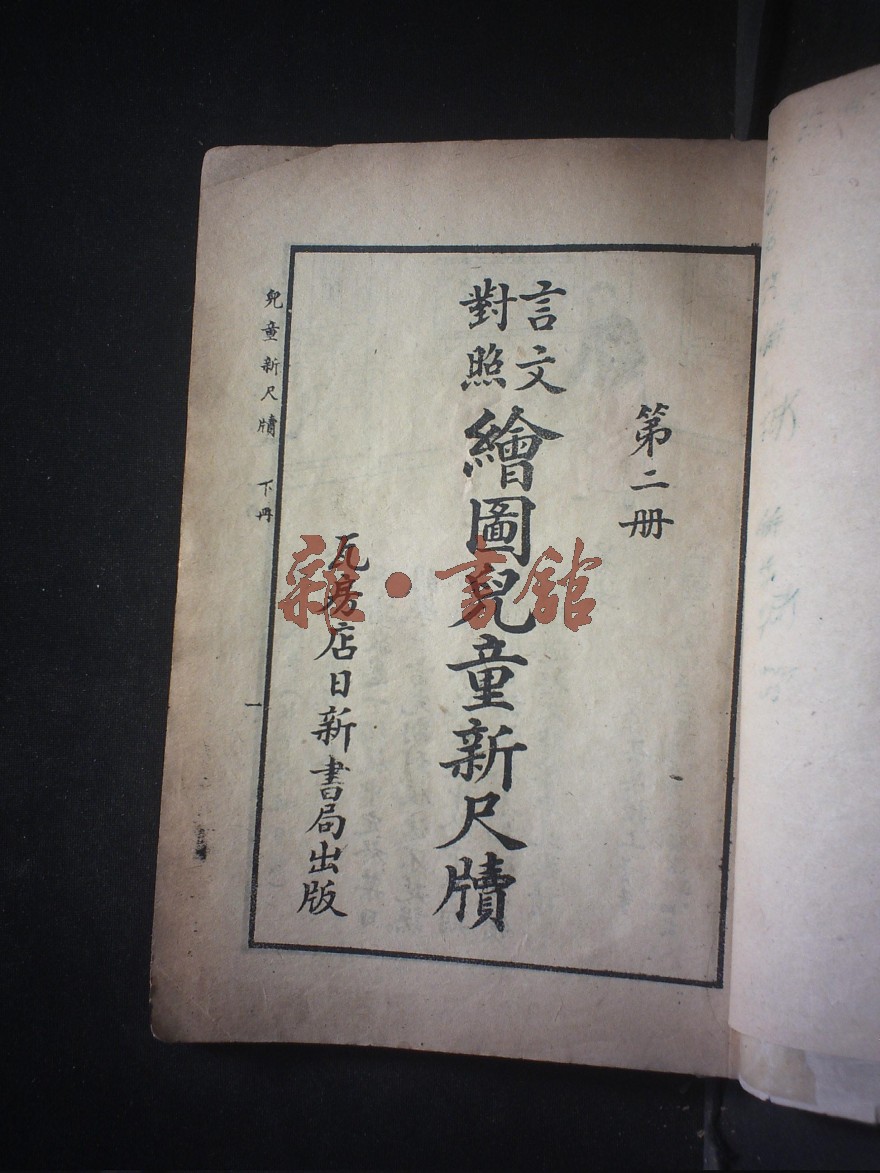 第二册
言文
對照
繪圖兒童新尺牘
瓦房店日新書局出版
兒童新尺牘 下冊
雜·書館